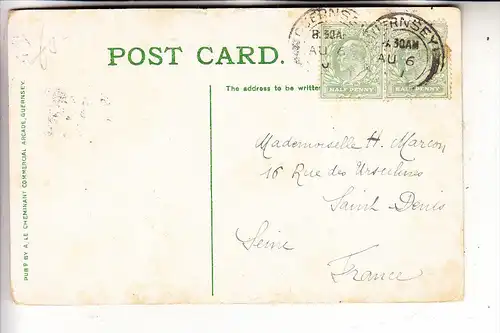 POST CARD.
The address to be written
GUERNSEY
8.30AM
AU 6
GUERNSEY
8.30AM
AU 6
HALF PENNY
HALF PENNY
Mademoiselle H. Marcon
16 Rue des Ursulines
Saint Denis
Seine
France
PUBD. BY A. LE CHEMINANT COMMERCIAL ARCADE, GUERNSEY.